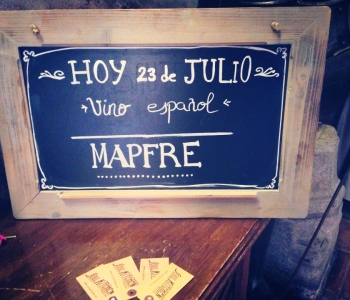 HOY 23 de JULIO
Vino español
MAPFRE